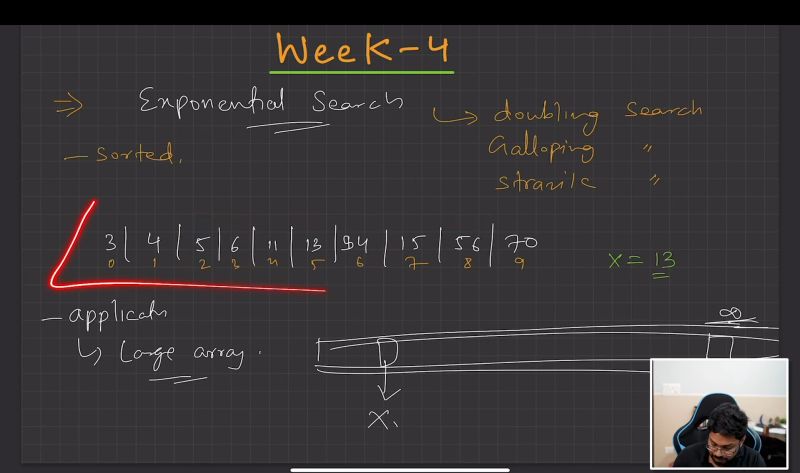 Week-4
⇒ Exponential Search
↳ doubling search
Galloping "
- Sorted.
3 | 4 | 5 | 6 | 11 | 13 | 34 | 15 | 56 | 70
0 1 2 3 4 5 6 7 8 9
x = 13
- applicatn
∞
↳ Large array.
X.